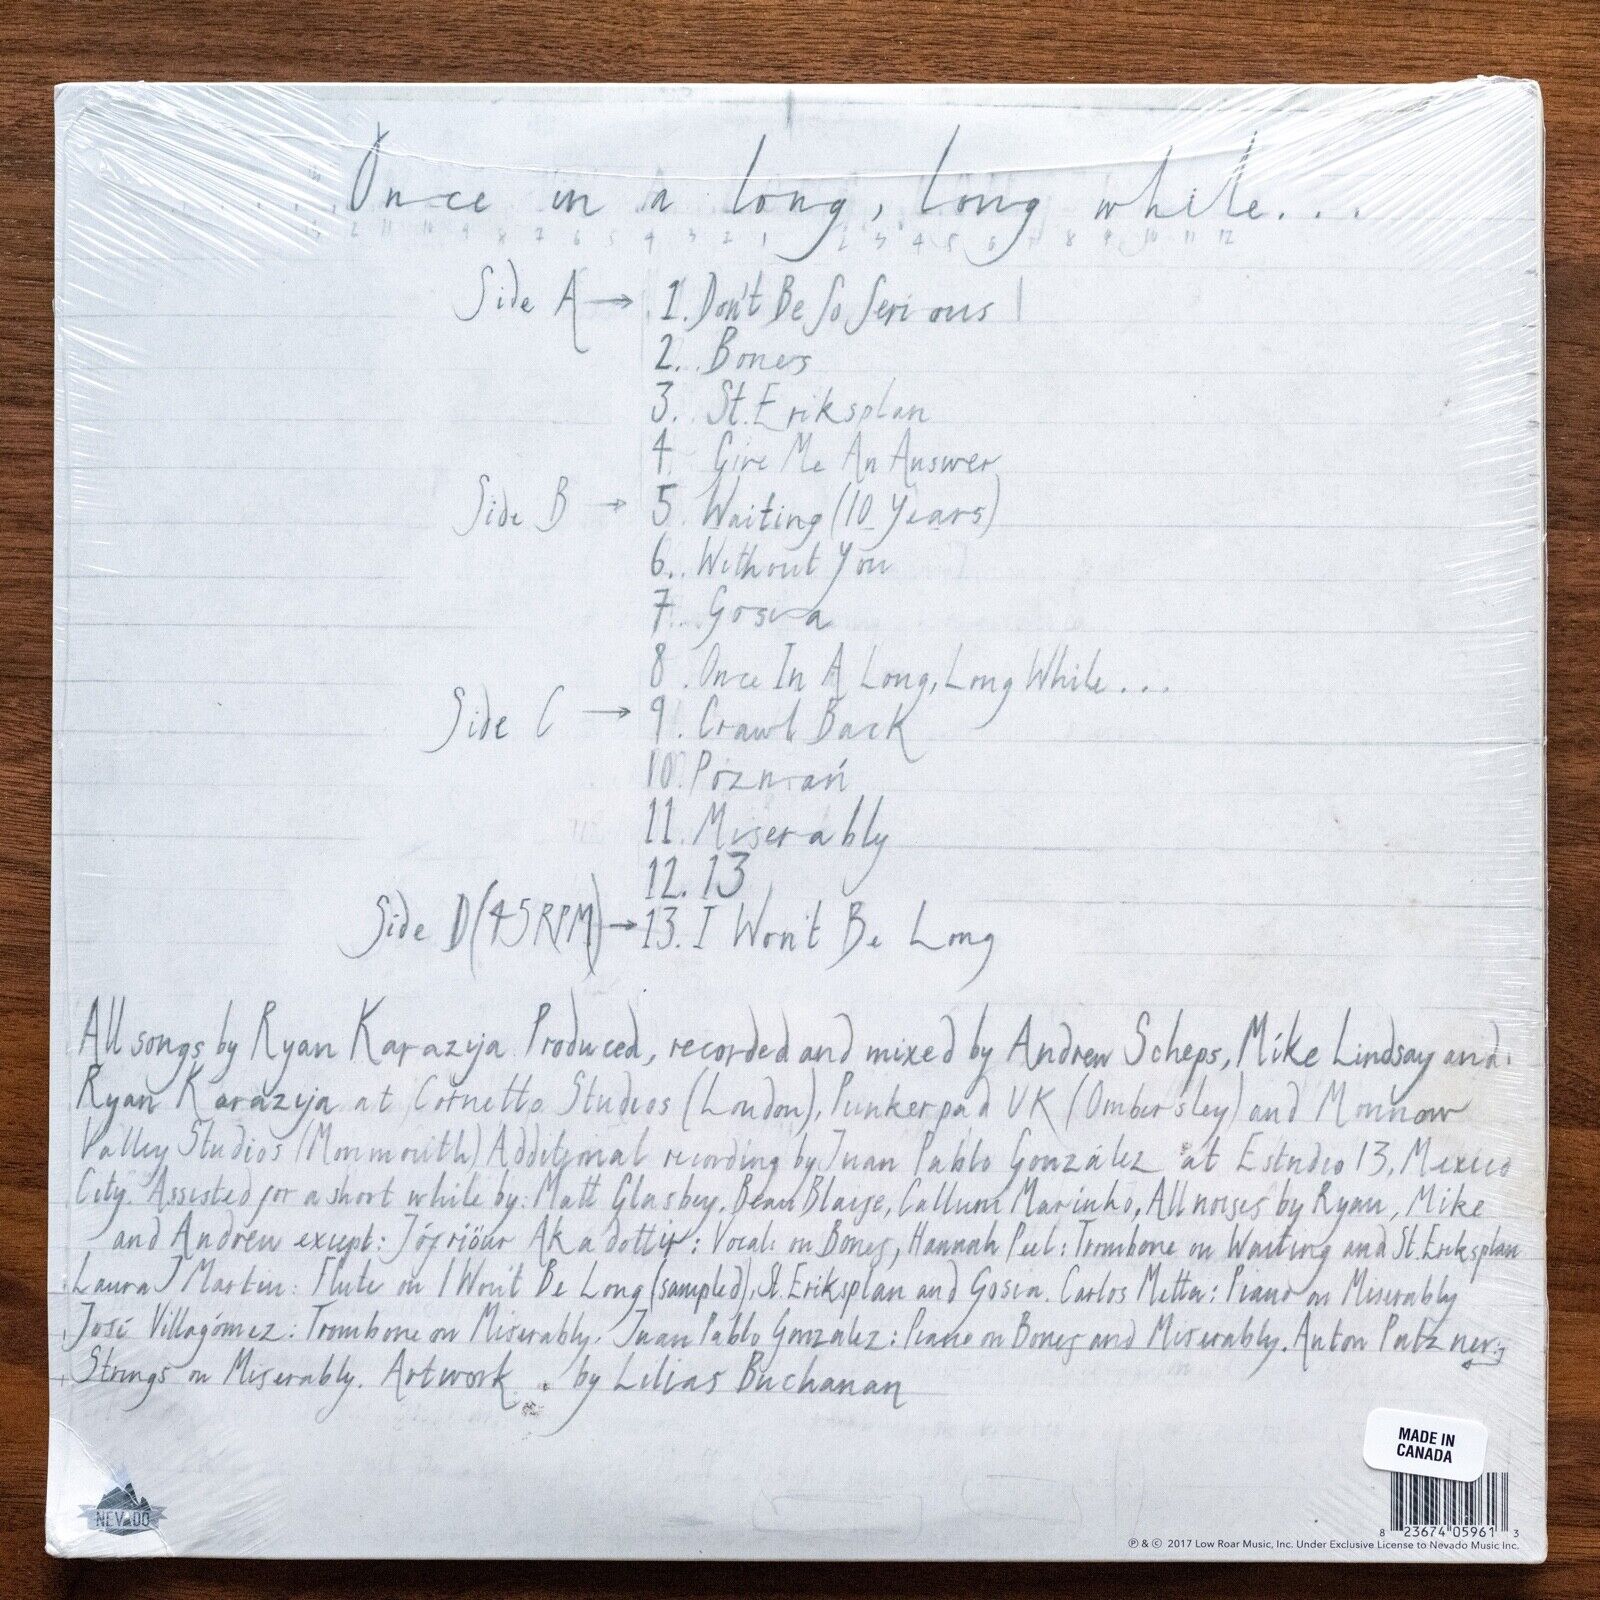 Once in a long, long while...
12 11 10 9 8 7 6 5 4 3 2 1 2 3 4 5 6 7 8 9 10 11 12
Side A → 1. Don't Be So Serious
2. Bones
3. St. Eriksplan
4. Give Me An Answer
Side B → 5. Waiting (10 Years)
6. Without You
7. Gosia
8. Once In A Long, Long While...
Side C → 9. Crawl Back
10. Poznań
11. Miserably
12. 13
Side D (45 RPM) → 13. I Won't Be Long
All songs by Ryan Karazija Produced, recorded and mixed by Andrew Scheps, Mike Lindsay and
Ryan Karazija at Cornetto Studios (London), Punkerpad UK (Ombersley) and Monnow
Valley Studios (Monmouth) Additional recording by Juan Pablo González at Estudio 13, Mexico
City. Assisted for a short while by: Matt Glasbey, Beau Blaise, Callum Marinho, All noises by Ryan, Mike
and Andrew except: Jófríöur Akadottir: Vocals on Bones, Hannah Peel: Trombone on Waiting and St. Eriksplan
Laura J Martin: Flute on I Won't Be Long (sampled), St. Eriksplan and Gosia. Carlos Metta: Piano on Miserably
José Villagómez: Trombone on Miserably. Juan Pablo González: Piano on Bones and Miserably. Anton Patzner:
Strings on Miserably. Artwork by Lilias Buchanan
MADE IN
CANADA
NEVADO
8 23674 05961 3
℗ & © 2017 Low Roar Music, Inc. Under Exclusive License to Nevado Music Inc.